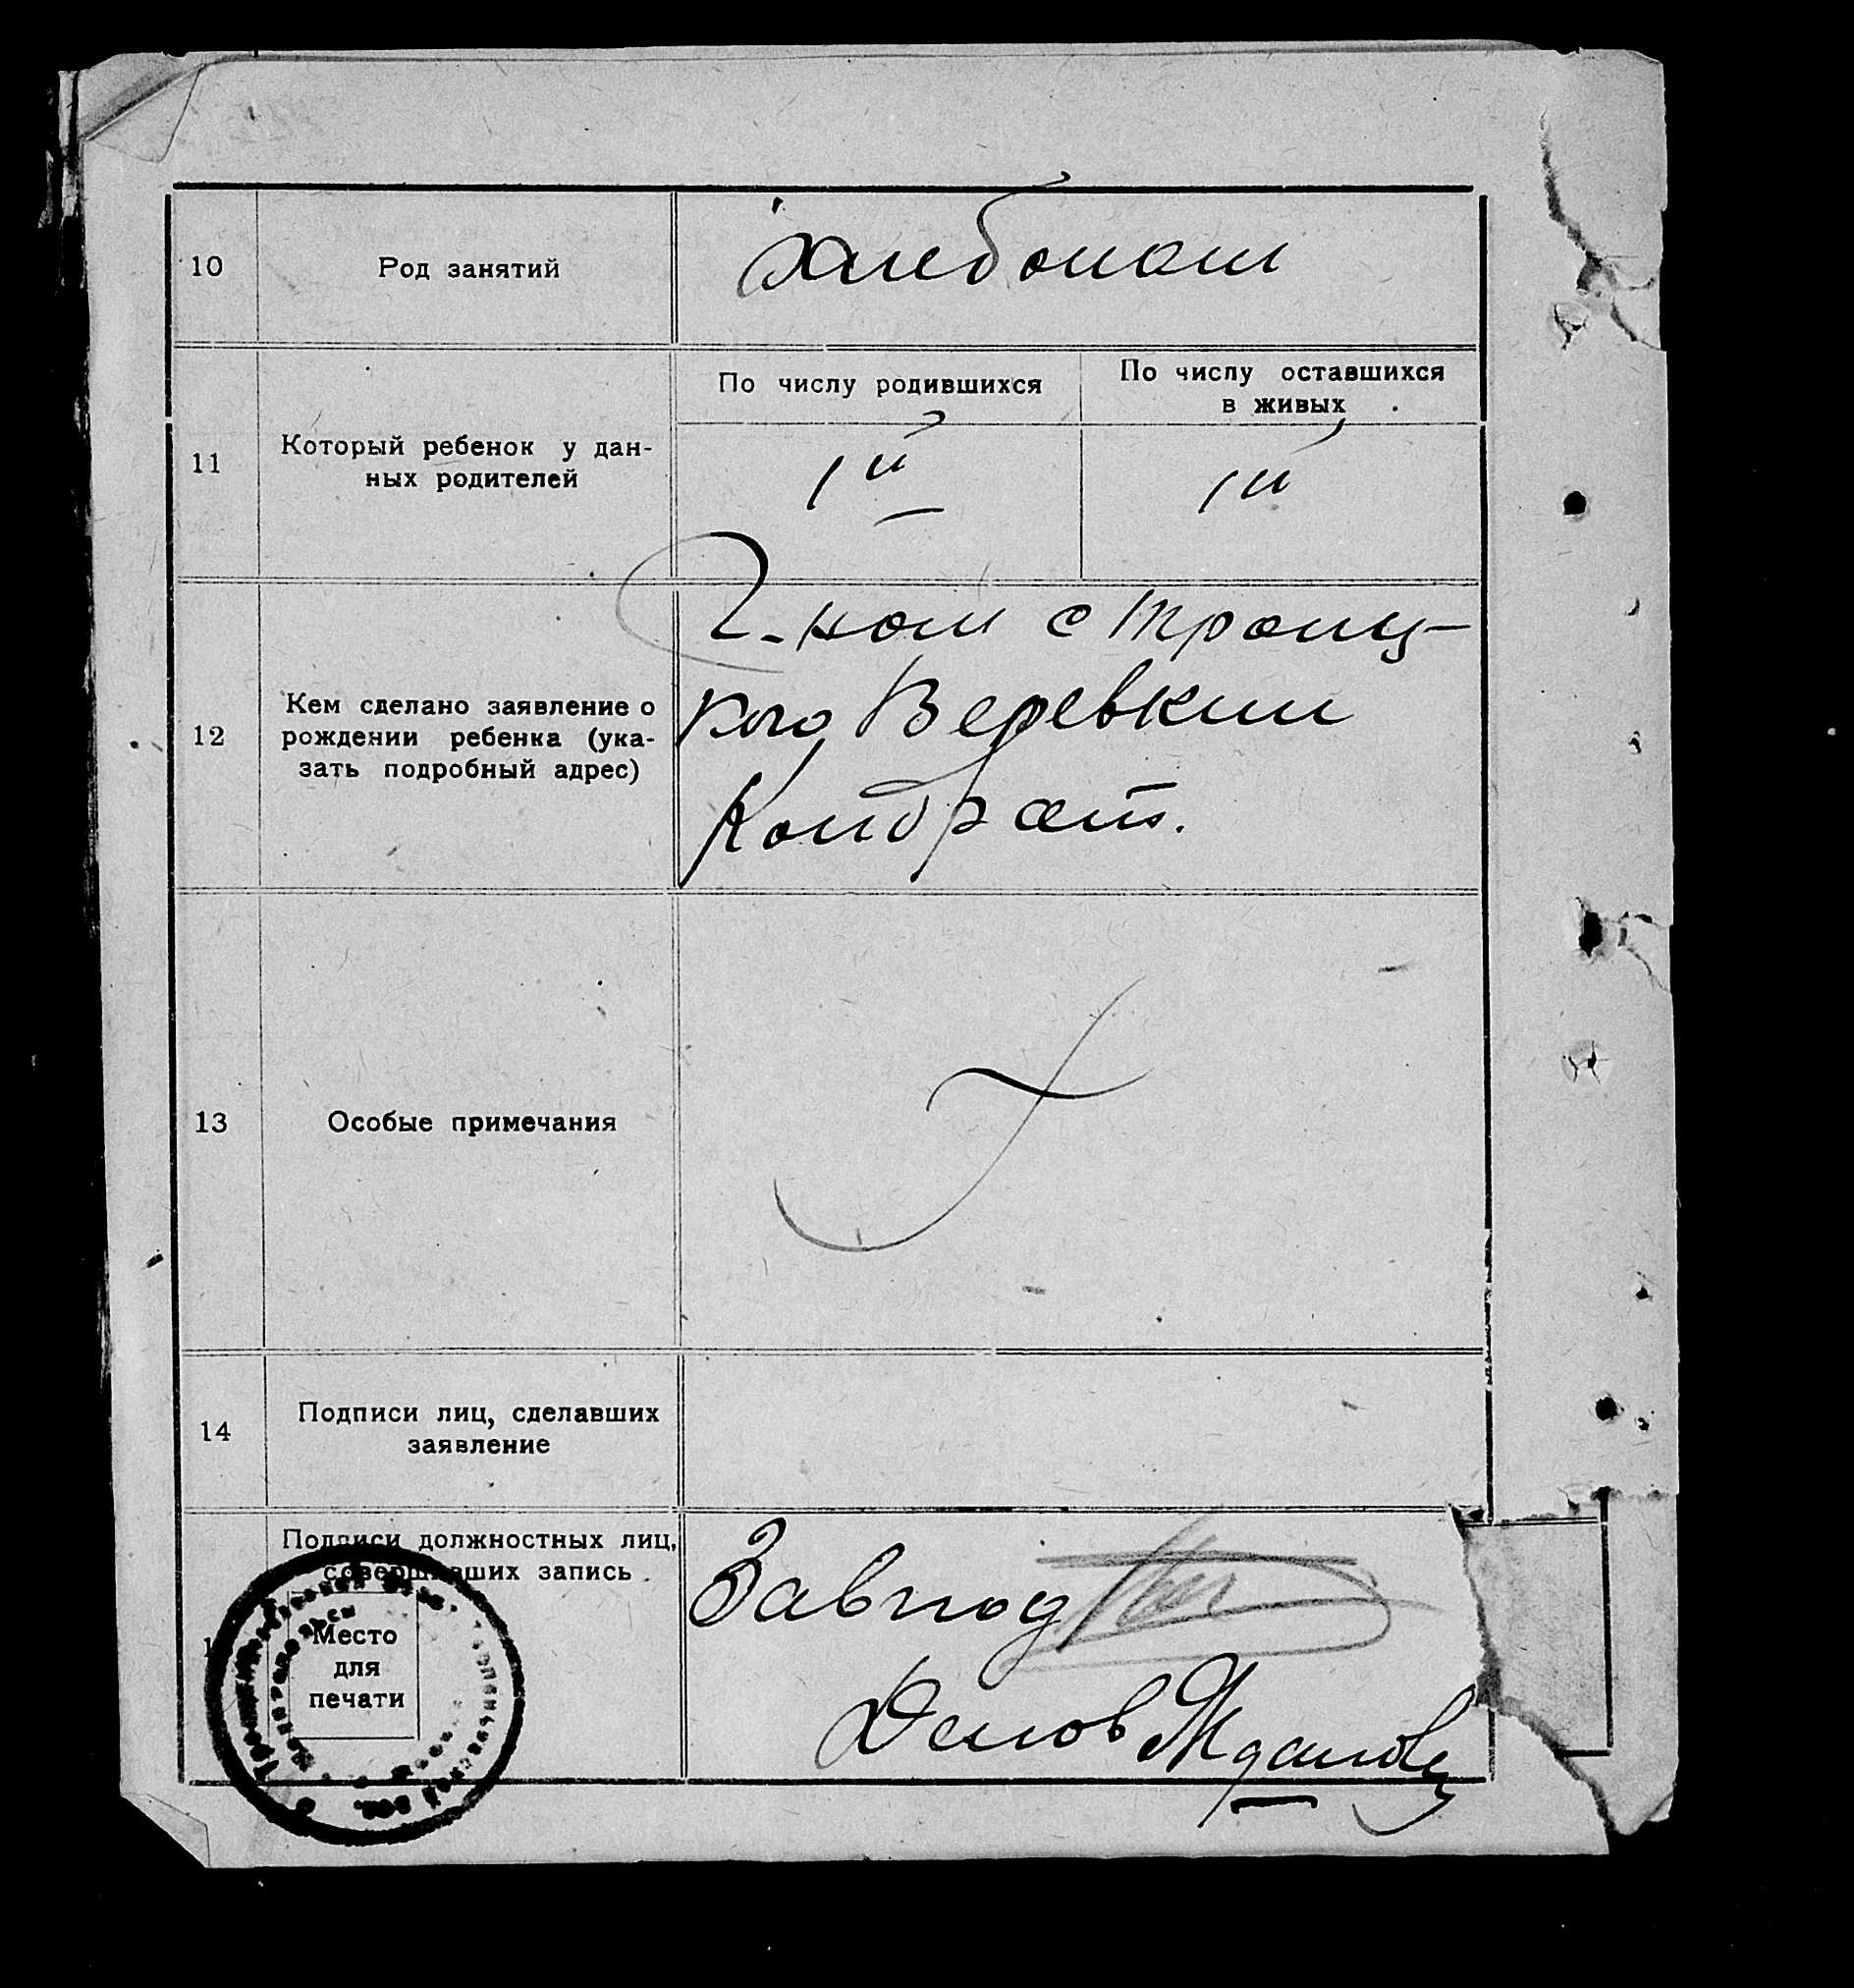 10
Род занятий
Хлебопаш
11
Который ребенок у дан-
ных родителей
По числу родившихся
По числу оставшихся
в живых
1й
1й
12
Кем сделано заявление о
рождении ребенка (ука-
зать подробный адрес)
Г-ном с Троиц-
кого Веревкин
Кондрат.
13
Особые примечания
14
Подписи лиц, сделавших
заявление
Подписи должностных лиц,
совершивших запись
Место
для
печати
Завпод
Делов